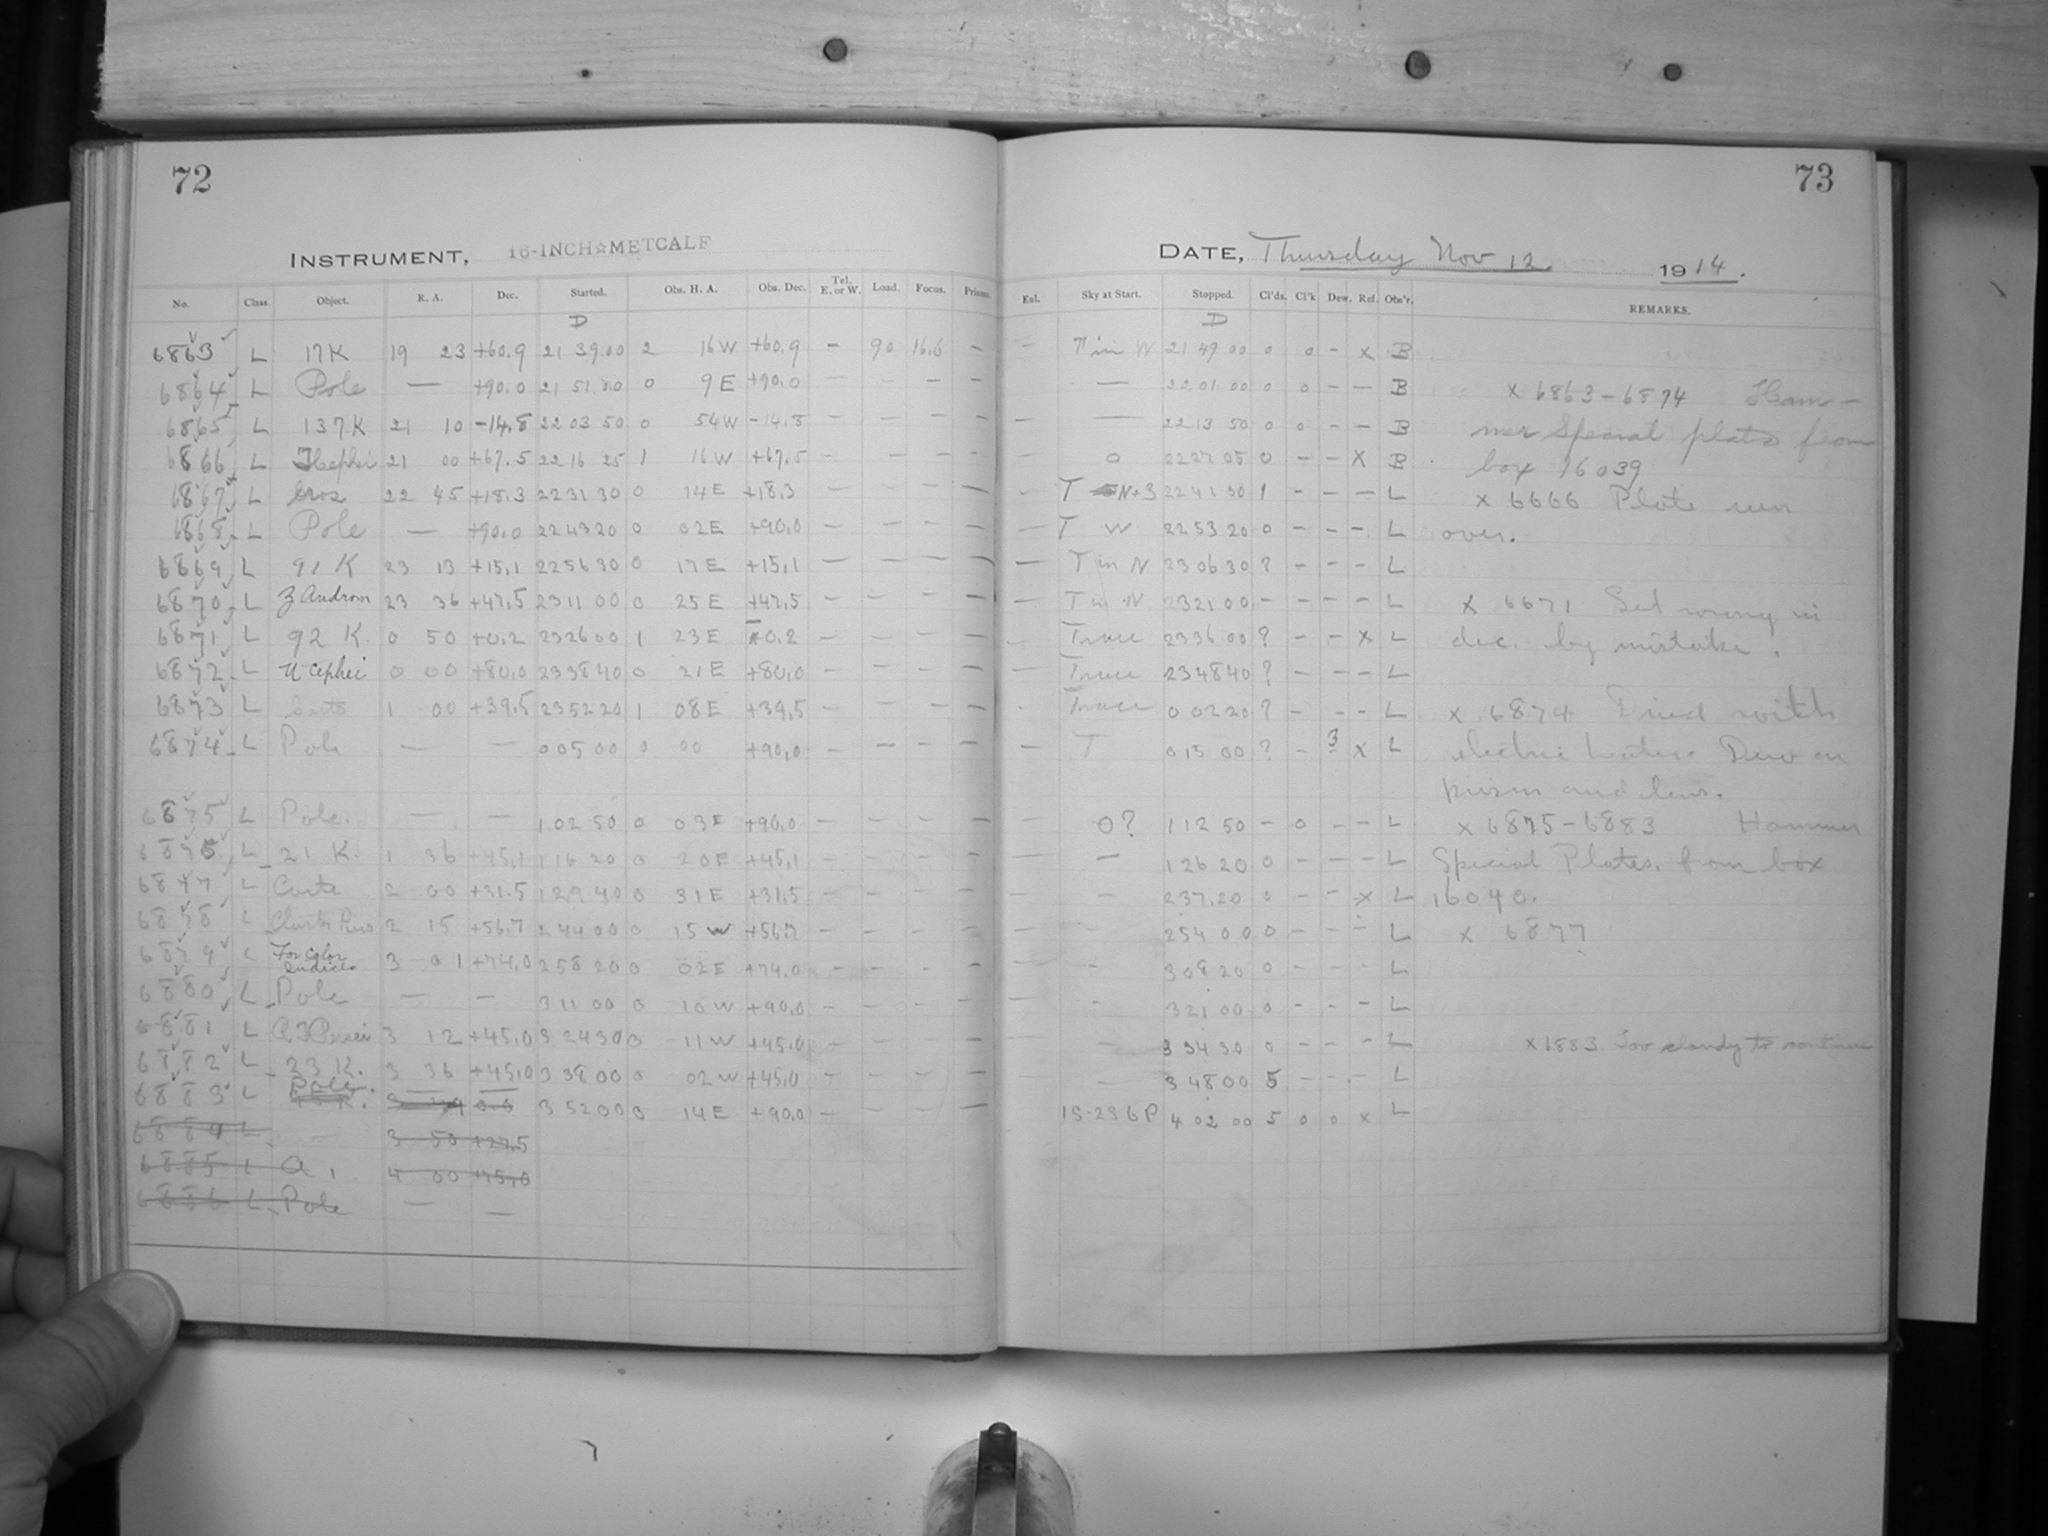 72
INSTRUMENT, 16-INCH☆METCALF
No. Class. Object. R. A. Dec. Started. Obs. H. A. Obs. Dec. Tel. E. or W. Load. Focus. Prisms.
D
6863 L 17K 19 23 +60.9 21 39.00 2 16W +60.9 - 90 16.6 -
6864 L Pole — +90.0 21 51.00 0 9E +90.0 — - - -
6865 L 137K 21 10 -14.8 22 03 50 0 54W -14.8 - - - -
6866 L 21 00 +67.5 22 16 25 1 16W +67.5 - - - -
6867 L 22 45 +18.3 22 31 30 0 14E +18.3 - - - -
6868 L Pole — +90.0 22 43 20 0 02E +90.0 - - - -
6869 L 91 K 23 13 +15.1 22 56 30 0 17E +15.1 - - - -
6870 L Z Androm 23 36 +47.5 23 11 00 0 25E +47.5 - - - -
6871 L 92 K. 0 50 +0.2 23 26 00 1 23E 0.2 - - - -
6872 L U Cephei 0 00 +80.0 23 38 40 0 21E +80.0 - - - -
6873 L 1 00 +39.5 23 52 20 1 08E +39.5 - - - -
6874 L Pole — — 0 05 00 0 00 +90.0 - - - -
6875 L Pole. — — 1 02 50 0 03E +90.0 - - - -
6876 L 21 K. 1 36 +45.1 1 16 20 0 20E +45.1 - - - -
6877 L Carte 2 00 +31.5 1 29 40 0 31E +31.5 - - - -
6878 L 2 15 +56.7 2 44 00 0 15W +56.7 - - - -
6879 L For Color Indices 3 01 +74.0 2 58 20 0 02E +74.0 - - - -
6880 L Pole — — 3 11 00 0 10W +90.0 - - - -
6881 L 3 12 +45.0 3 24 30 0 11W +45.0 - - - -
6882 L 23 K. 3 36 +45.0 3 38 00 0 02W +45.0 - - - -
6883 L Pole. 3 52 00 0 14E +90.0 - - - -
6884 L 3 50 +27.5
6885 L a, 4 00 +75.0
6886 L Pole — —
73
DATE, Thursday Nov 12, 1914.
Ext. Sky at Start. Stopped. Cl'ds. Cl'k Dew. Ref. Obs'r. REMARKS.
D
- T in W 21 49 00 0 0 - x B
— 22 01 00 0 0 - - B x 6863-6874 Ham-
- — 22 13 50 0 0 - - B mer Special plates from
- 0 22 27 05 0 - - X B box 16039
- T N+3 22 41 30 1 - - - L x 6666 Plate run
— T W 22 53 20 0 - - - L over.
— T in N 23 06 30 ? - - - L
— T in N 23 21 00 - - - - L x 6671 Set wrong in
- Trace 23 36 00 ? - - x L dec. by mistake.
— Trace 23 48 40 ? - - - L
- Trace 0 02 20 ? - - - L x 6874 Dried with
- T 0 15 00 ? - 3 x L electric heater. Dew on
prism and lens.
— 0? 1 12 50 - 0 - - L x 6875-6883 Hammer
— - 1 26 20 0 - - - L Special Plates. from box
— - 2 37.20 0 - - x L 16040.
— - 2 54 00 0 - - - L x 6877
- 3 08 20 0 - - - L
— - 3 21 00 0 - - - L
- 3 34 30 0 - - - L x 1883 Too cloudy to continue
- 3 48 00 5 - - - L
15-236P 4 02 00 5 0 0 x L